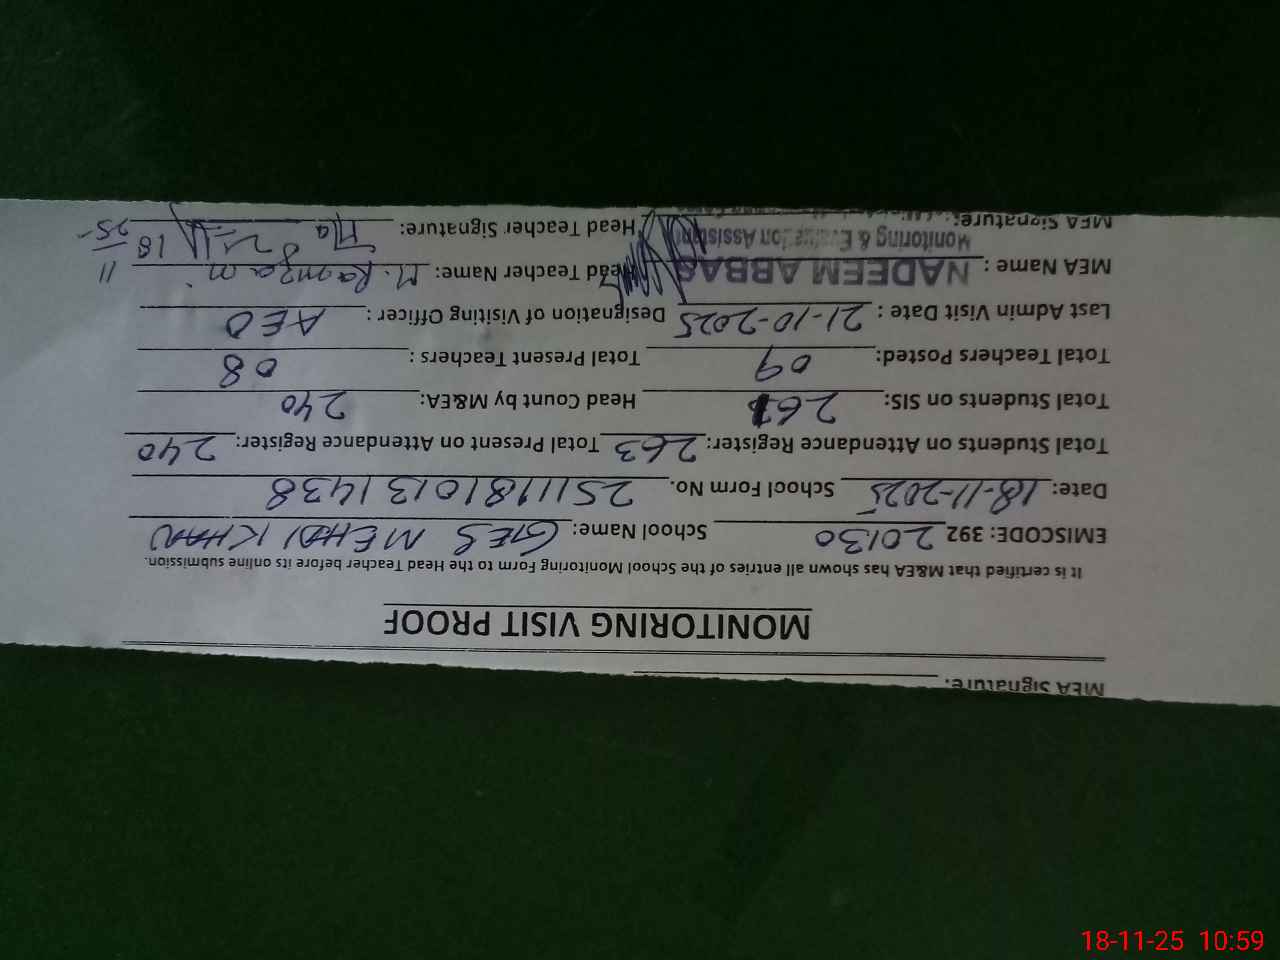 MEA Signature:
MONITORING VISIT PROOF
It is certified that M&EA has shown all entries of the School Monitoring Form to the Head Teacher before its online submission.
EMISCODE: 392 20130 School Name: GES MEHDI KHAN
Date: 18-11-2025 School Form No. 25111810131438
Total Students on Attendance Register: 263 Total Present on Attendance Register: 240
Total Students on SIS: 261 Head Count by M&EA: 240
Total Teachers Posted: 09 Total Present Teachers : 08
Last Admin Visit Date : 21-10-2025 Designation of Visiting Officer : AEO
MEA Name : NADEEM ABBAS Head Teacher Name: M. Ramzan
Monitoring & Evaluation Assistant
MEA Signature: Head Teacher Signature: 18
11
25
18-11-25 10:59